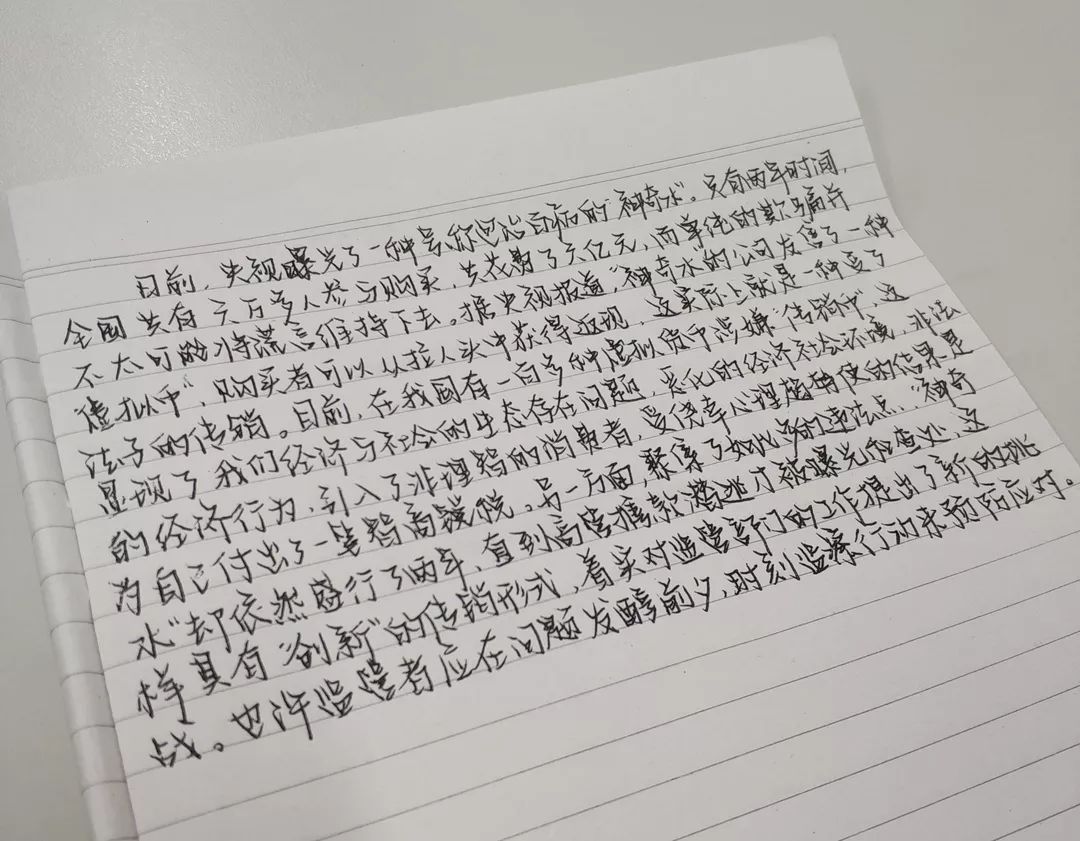 日前，央视曝光了一种号称包治百病的“神奇水”。只有两年时间，
全国共有三万多人参与购买，共花费了六亿元，而单纯的欺骗并
不太可能将谎言维持下去。据央视报道，“神奇水”的公司发售了一种
“虚拟币”，购买者可以从拉人头中获得返现，这实际上就是一种变了
法子的传销。目前，在我国有一百多种虚拟货币涉嫌“传销币”，这
显现了我们经济与社会的生态存在问题，恶化的经济社会环境，非法
的经济行为，引入了非理智的消费者，受侥幸心理趋使的结果是
为自己付出了一笔智商税。另一方面，聚集了如此多的违法点，“神奇
水”却依然盛行了两年，直到高管携款潜逃才被曝光和查处，这
样具有“创新”的传销形式，着实对监管部门的工作提出了新的挑
战。也许监管者应在问题发酵前夕，时刻监察行动来预防应对。